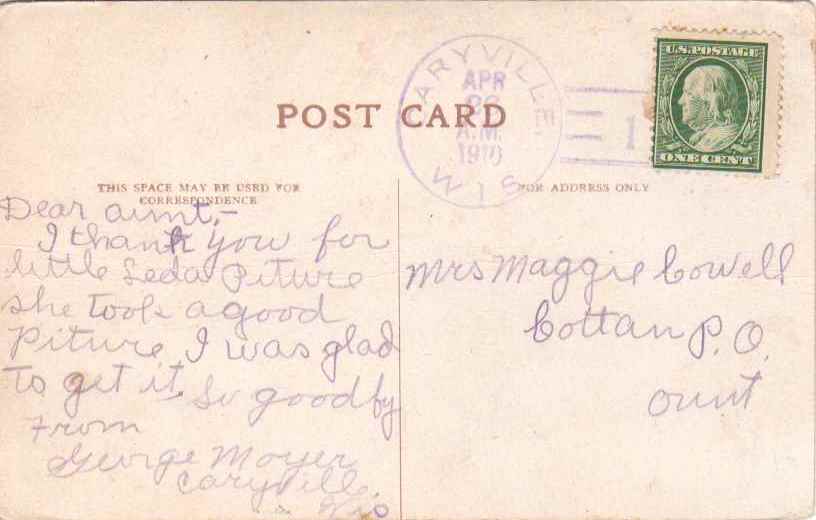 U.S. POSTAGE
ONE CENT
ARYVILLE
WIS
APR
A.M.
1910
1
POST CARD
THIS SPACE MAY BE USED FOR
CORRESPONDENCE
FOR ADDRESS ONLY
Dear aunt,-
I thank you for
little Leda Piture
she took a good
Piture, I was glad
to get it, so good by
From
George Moyer
Caryville,
Wis
Mrs Maggie Cowell
Cottam P.O.
Ount